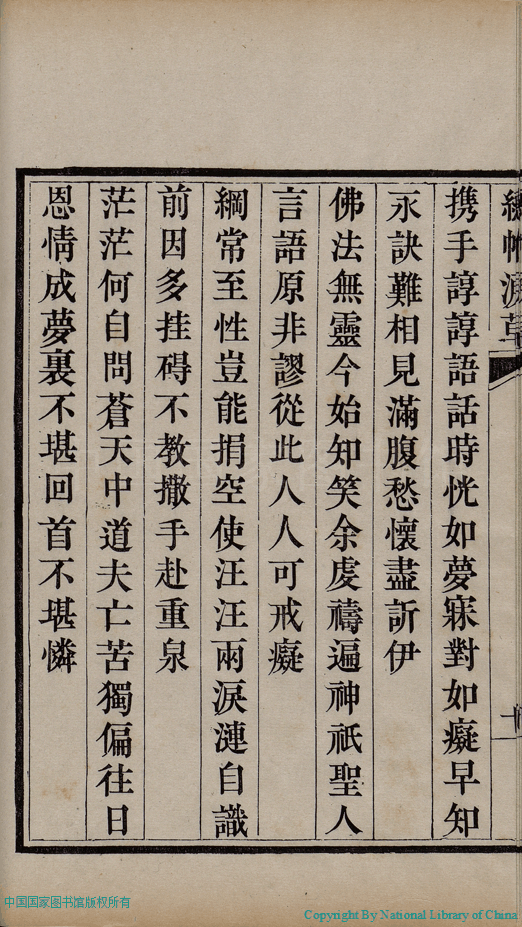 携手諄諄語話時恍如夢寐對如癡早知
永訣難相見滿腹愁懷盡訢伊
佛法無靈今始知笑余虔禱遍神祇聖人
言語原非謬從此人人可戒癡
綱常至性豈能捐空使汪汪兩淚漣自識
前因多挂碍不教撒手赴重泉
茫茫何自問蒼天中道夫亡苦獨偏往日
恩情成夢裏不堪回首不堪憐
中国国家图书馆版权所有
Copyright By National Library of China